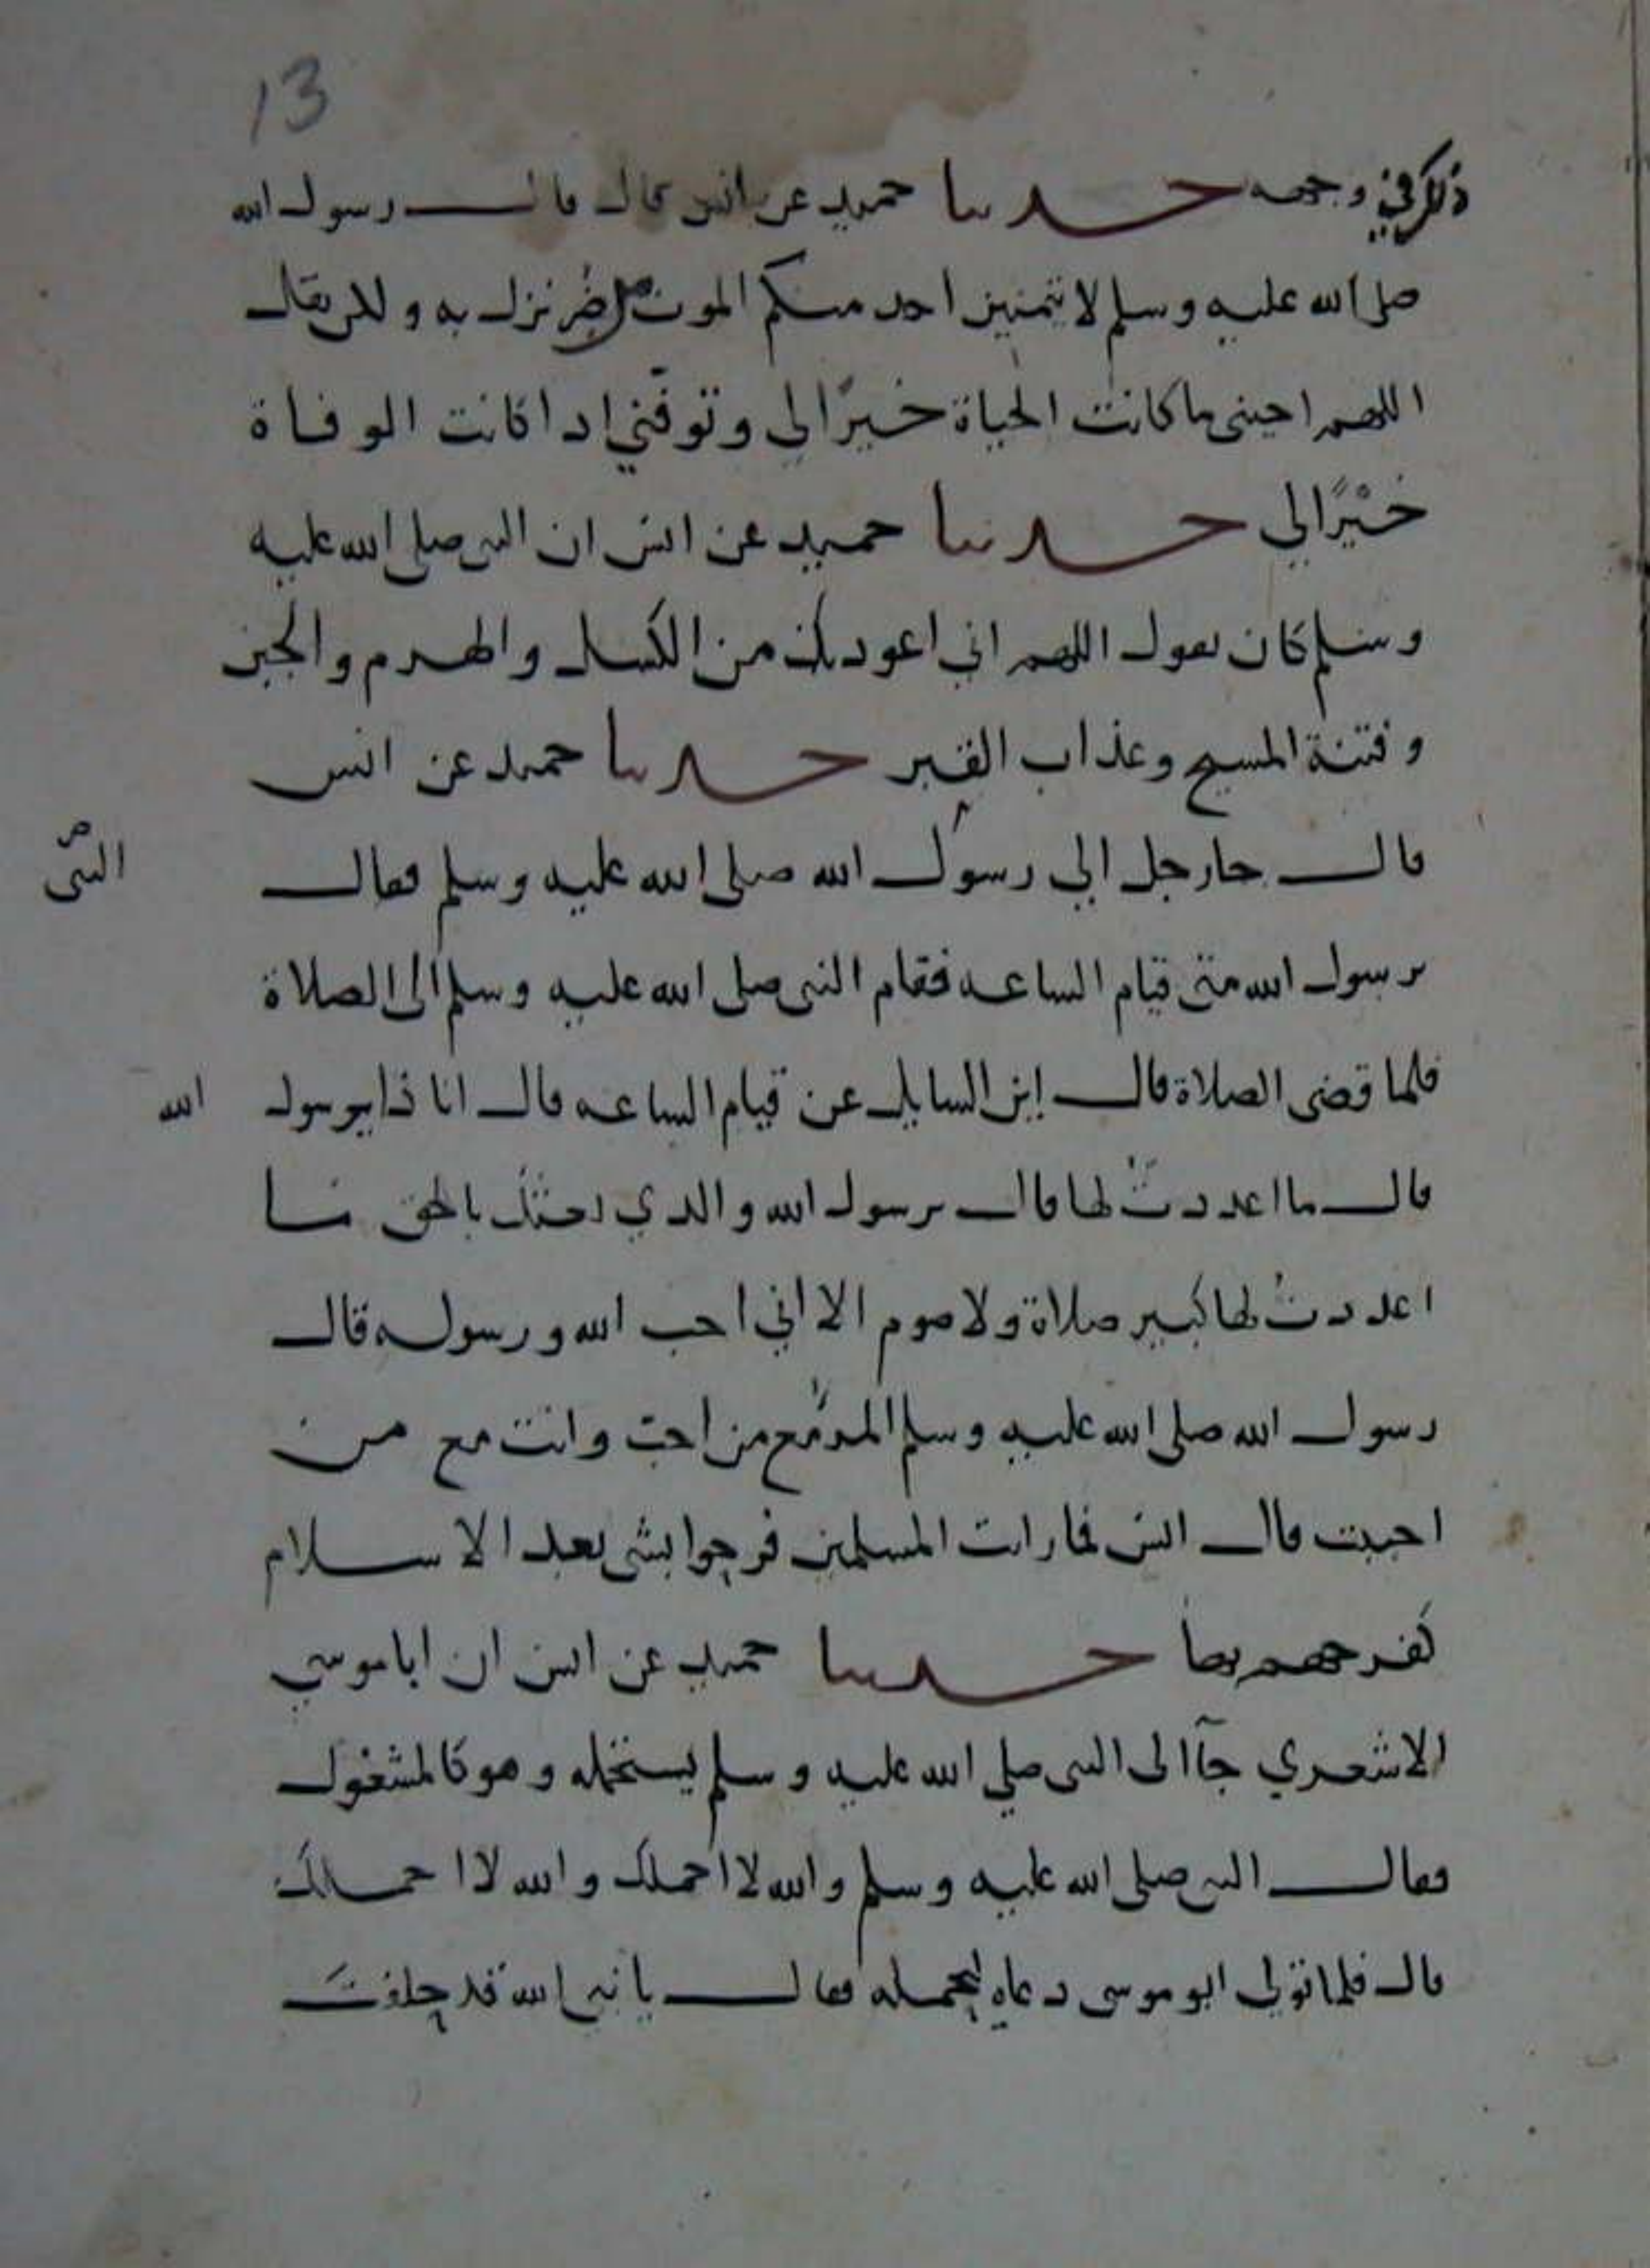 13
ذلك في وجهه حدثنا حميد عن انس قال قال رسول الله
صلى الله عليه وسلم لا يتمنين احد منكم الموت لضر نزل به ولكن يقال
اللهم احيني ما كانت الحياة خيرًا لي وتوفّني اذا كانت الوفاة
خيْرًا لي حدثنا حميد عن انس ان النبي صلى الله عليه
وسلم كان يقول اللهم اني اعوذ بك من الكسل والهرم والجبن
وفتنة المسيح وعذاب القبر حدثنا حميد عن انس
قال جا رجل الي رسول الله صلى الله عليه وسلم فقال
النبي
يرسول الله متى قيام الساعه فقام النبي صلى الله عليه وسلم الى الصلاة
فلما قضى الصلاة قال اين السايل عن قيام الساعه قال انا ذا يرسول الله
قال ما اعددتَ لها قال يرسول الله والذي بعثك بالحق ما
اعددتُ لها كبير صلاة ولا صوم الا اني احب الله ورسوله قال
رسول الله صلى الله عليه وسلم المرء مع من احب وانت مع من
احببت قال انس فما رايت المسلمين فرحوا بشي بعد الاسلام
كفرحهم بها حدثنا حميد عن انس ان ابا موسي
الاشعري جآ الى النبي صلي الله عليه وسلم يستحمله وهو كالمشغول
فقال النبي صلى الله عليه وسلم والله لا احملك والله لا احملك
قال فلما تولي ابو موسى دعاه ليحمله فقال يا نبي الله قد حلفتَ